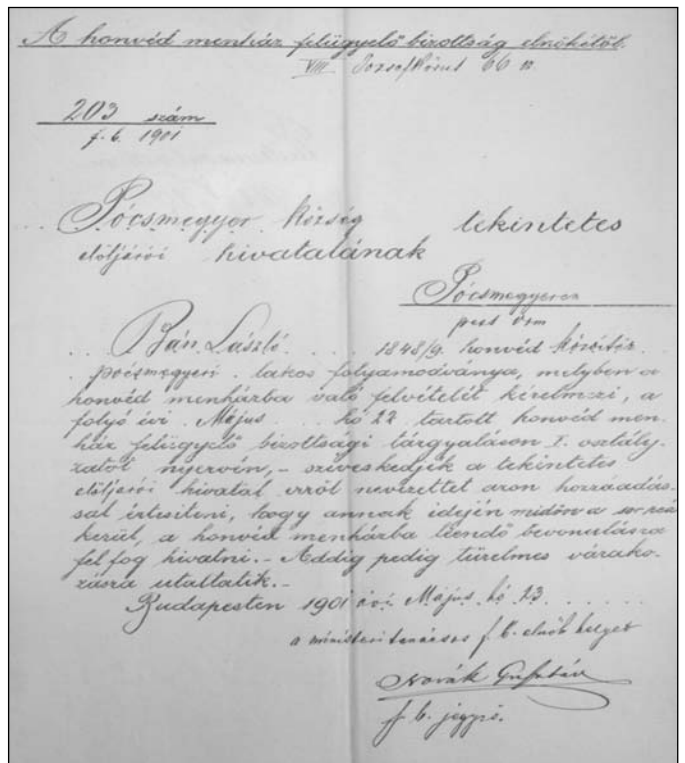 A honvéd menház felügyelő bizottság elnökétől.
VIII József körut 66 sz.
203 szám
f. b. 1901
Pócsmegyer község tekintetes
elöljárói hivatalának
Pócsmegyeren
pest vm
Bán László 1848/9. honvéd
pócsmegyeri lakos folyamodványa, melyben a
honvéd menházba való felvételét kérelmezi, a
folyó évi Május hó 22 tartott honvéd men-
ház felügyelő bizottsági tárgyaláson I. osztály-
zatot nyervén, - sziveskedjék a tekintetes
elöljárói hivatal erről nevezettet azon hozzáadás-
sal értesiteni, hogy annak idején midőn a sor reá
kerül, a honvéd menházba leendő bevonulásra
fel fog hivatni. - Addig pedig türelmes várako-
zásra utaltatik. -
Budapesten 1901 évi Május hó 23
a ministeri tanácsos f. b. elnök helyett
Novák Gusztáv
f. b. jegyző.